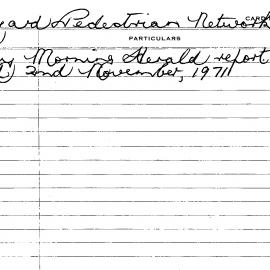 yard Pedestrian Network
CARD
PARTICULARS
Morning Herald report
2nd November, 1971